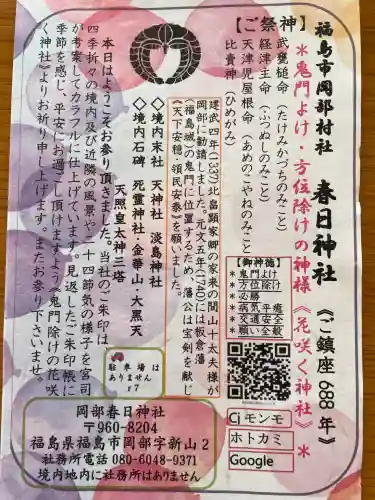 福島市岡部村社　春日神社　《ご鎮座688年》
＊鬼門よけ・方位除けの神様《花咲く神社》＊
【ご祭神】
武甕槌命（たけみかづちのみこと）
経津主命（ふつぬしのみこと）
天津児屋根命（あめのこやねのみこと）
比賣神（ひめがみ）
【御神徳】
＊鬼門よけ
＊方位除け
＊必勝
＊病気平癒
＊交通安全
＊願い全般
建武四年(1337)北畠顕家卿の家来の間山十太夫様が
岡部に勧請しました。元文五年(1740)には板倉藩
(福島城)の鬼門に位置するため、藩公は宝剣を献じ
《天下安穏・領民安泰》を願いました。
◇境内末社　天神社　淡島神社
◇境内石碑　死霊神・金華山・大黒天
天照皇太神三塔
本日はようこそお参り頂きました。当社のご朱印は
四季折々の境内及び近隣の風景や二十四節気の様子を宮司
が考案してカラフルに仕上げています。見返したご朱印帳に
季節を感じ、平安にお過ごし頂けますよう《鬼門除けの花咲
く神社》よりお祈り申し上げます。またお参り下さいませ。
駐車場は
ありません
r7
Cjモンモ
ホトカミ
Google
岡部春日神社
〒960-8204
福島県福島市岡部字新山2
社務所電話 080-6048-9371
境内地内に社務所はありません